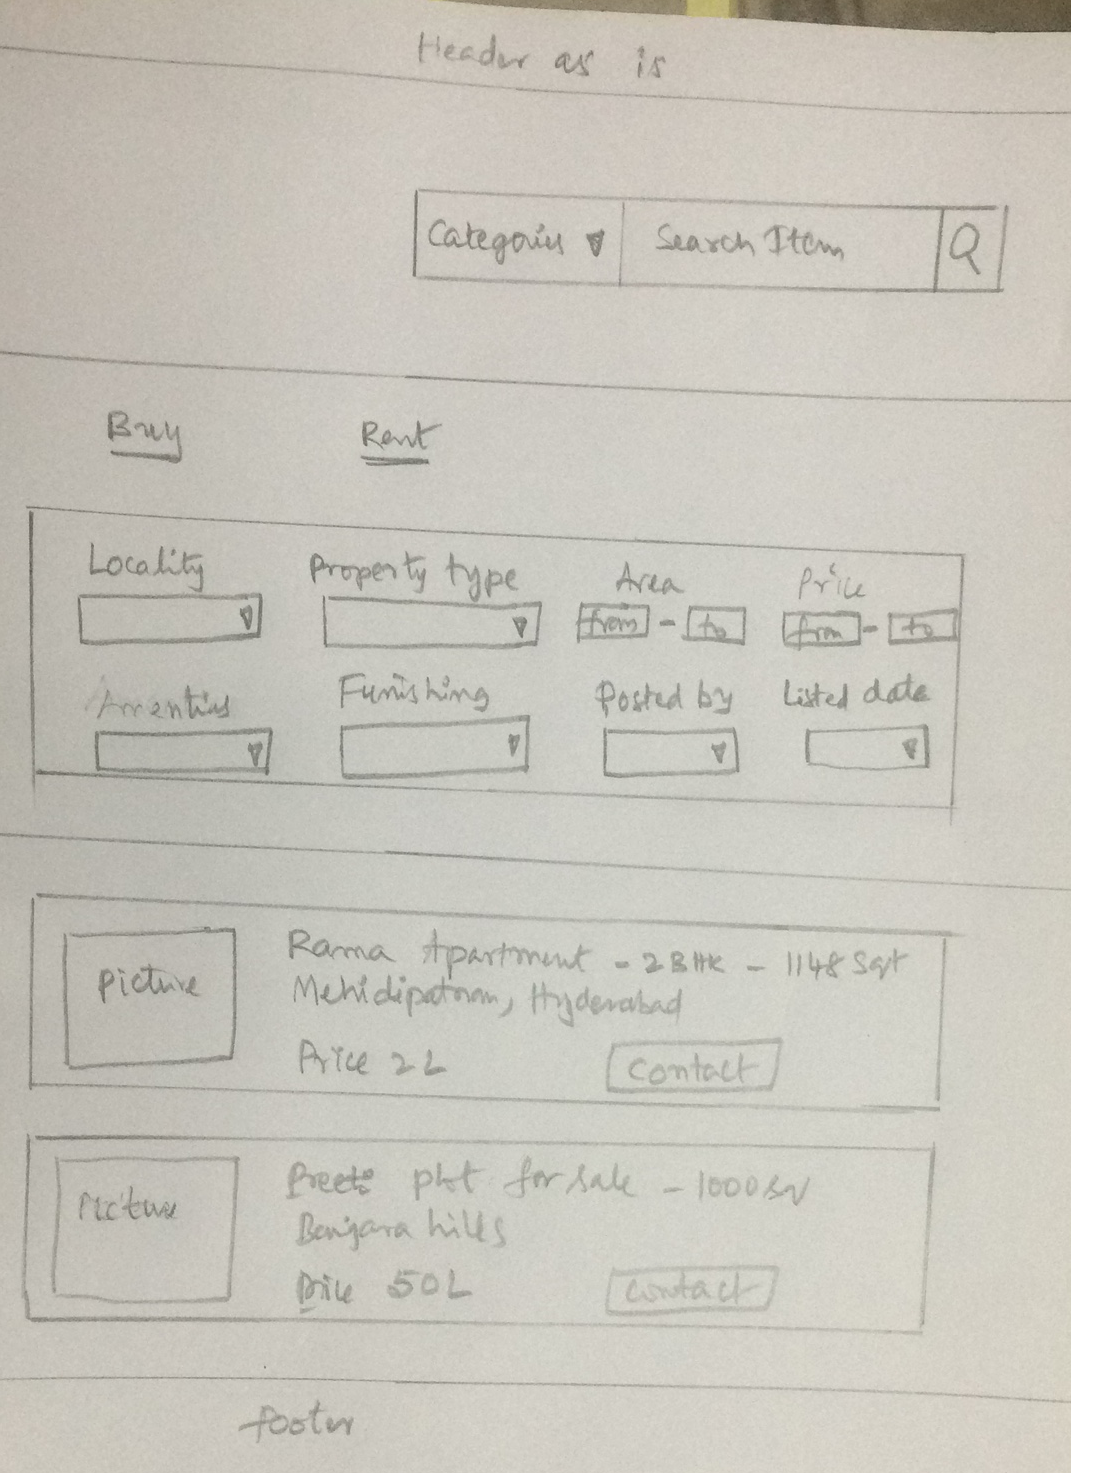 Header as is
Categories Search Item
Buy Rent
Locality Property type Area Price
from - to from - to
Amentius Funishing Posted by Listed date
Picture
Rama Apartment - 2 BHK - 1148 Sqt
Mehidipatnam, Hyderabad
Price 2 L
Contact
Picture
plot for sale - 1000
Banjara hills
Price 50L
Contact
footer